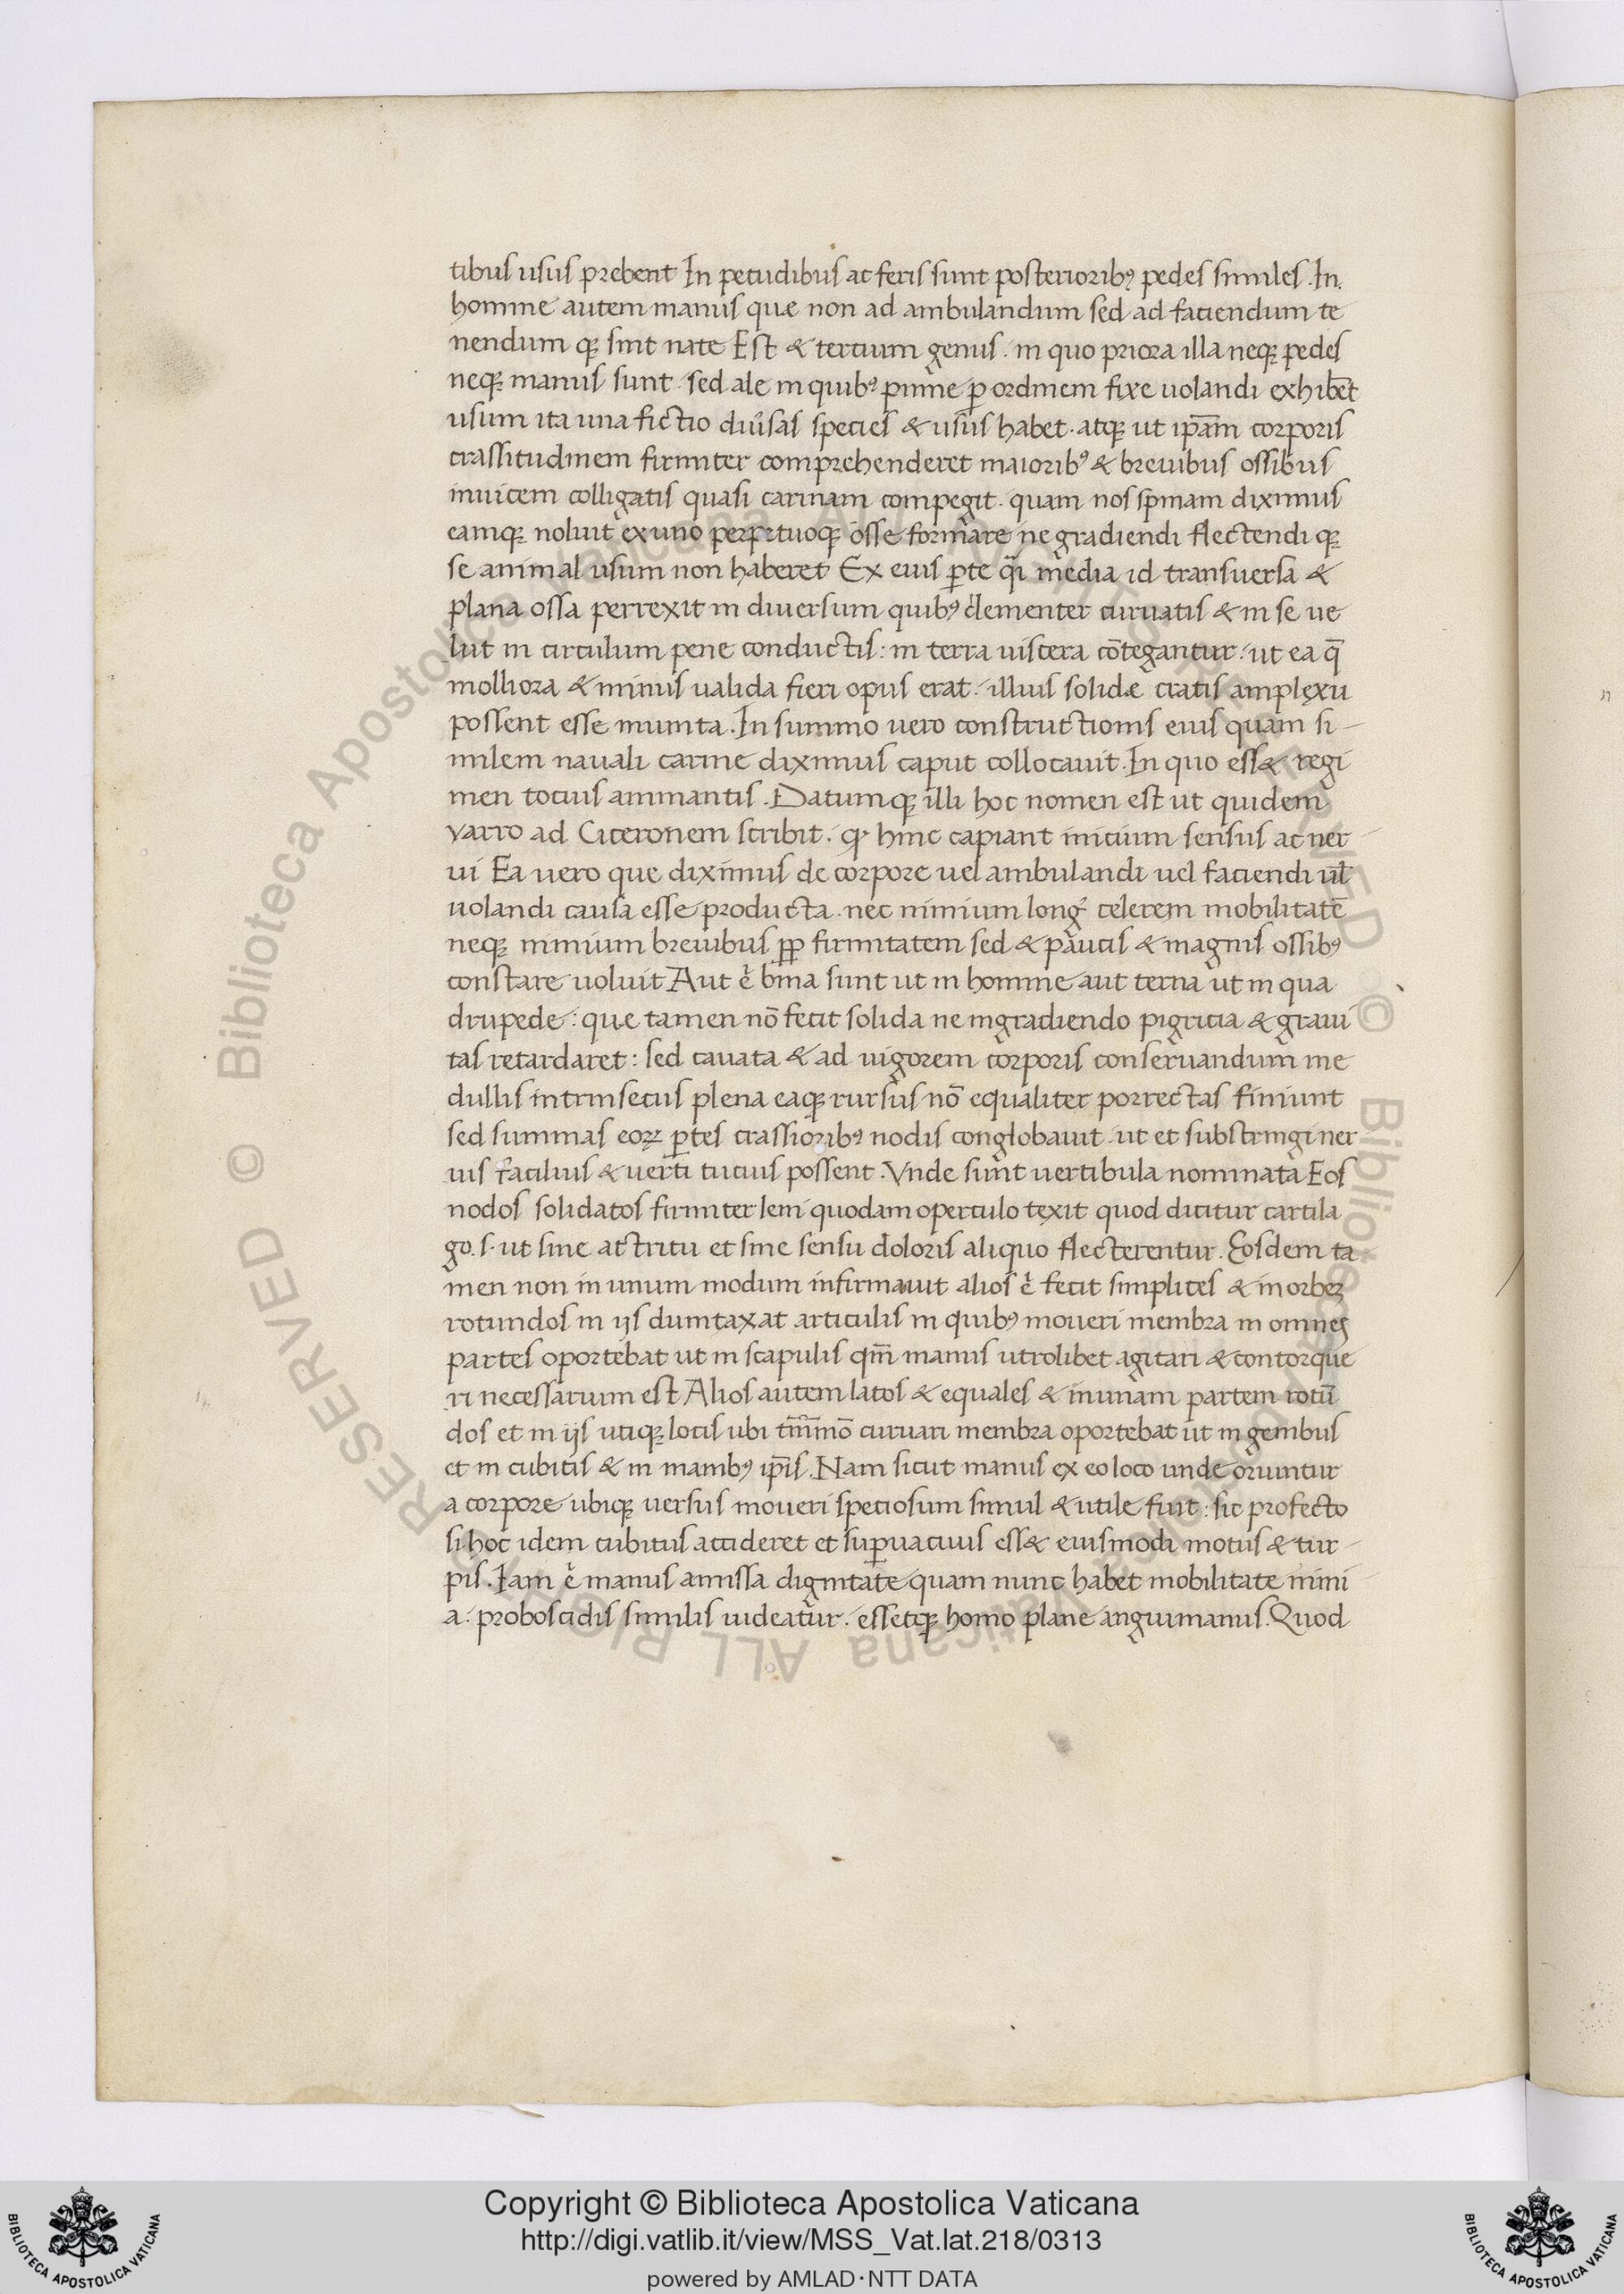 tibus usus prebent In pecudibus ac feris sunt posterioribꝰ pedes similes. In
homine autem manus que non ad ambulandum sed ad faciendum te
nendum qꝫ sint nate Est & tercium genus. in quo priora illa neqꝫ pedes
neqꝫ manus sunt. sed ale in quibꝰ pinne ꝑ ordinem fixe uolandi exhibēt
usum ita una fictio diu͛sas species & usus habet. atqꝫ ut ip̄am corporis
crassitudinem firmiter comprehenderet maioribꝰ & breuibus ossibus
inuicem colligatis quasi carinam compegit. quam nos spinam diximus
eamqꝫ noluit ex uno perpetuoqꝫ osse formare ne gradiendi flectendi qꝫ
se animal usum non haberet Ex eius ꝑte q̄i media id transuersa &
plana ossa perrexit in diuersum quibꝰ clementer curuatis & in se ue
lut in circulum pene conductis: in terra uiscera cōtegantur. ut ea q̄
molliora & minus ualida fieri opus erat. illius solidæ cratis amplexu
possent esse munita. In summo uero constructionis eius quam si-
milem nauali carine diximus caput collocauit. In quo ess& regi
men tocius animantis. Datumqꝫ illi hoc nomen est ut quidem
varro ad Ciceronem scribit. ꝙ hinc capiant inicium sensus ac ner
ui Ea uero que diximus de corpore uel ambulandi uel faciendi ul̄
uolandi causa esse producta. nec nimium long͛ celerem mobilitatē
neqꝫ nimium breuibus ꝓꝑ firmitatem sed & paucis & magnis ossibꝰ
constare uoluit Aut e͛ bina sunt ut in homine aut terna ut in qua
drupede: que tamen nō fecit solida ne ingradiendo pigricia & graui
tas retardaret: sed cauata & ad uigorem corporis conseruandum me
dullis intrinsecus plena eaqꝫ rursus nō equaliter porrectas finiunt
sed summas eoꝝ ꝑtes crassioribꝰ nodis conglobauit. ut et substringi ner
uis facilius & uerti tucius possent. Vnde sunt uertibula nominata Eos
nodos solidatos firmiter leni quodam operculo texit quod dicitur cartila
go. s. ut sine attritu et sine sensu doloris aliquo flecterentur. Eosdem ta
men non in unum modum infirmauit alios e͛ fecit simplices & in orbez
rotundos in ijs dumtaxat articulis in quibꝰ moueri membra in omnes
partes oportebat ut in scapulis qm̄ manus utrolibet agitari & contorque
ri necessarium est Alios autem latos & equales & in unam partem rotū
dos et in ijs utiqꝫ locis ubi tm̄mō curuari membra oportebat ut in genibus
et in cubitis & in manibꝰ ip̄is. Nam sicut manus ex eo loco unde oriuntur
a corpore ubiqꝫ uersus moueri speciosum simul & utile fuit: sic profecto
si hoc idem cubitus accideret et suꝑuacuus ess& eiusmodi motus & tur-
pis. Iam e͛ manus amissa dignitate quam nunc habet mobilitate nimi
a. proboscidis similis uideatur. essetqꝫ homo plane anguimanus. Quod
© Biblioteca Apostolica Vaticana ALL RIGHTS RESERVED
Copyright © Biblioteca Apostolica Vaticana
http://digi.vatlib.it/view/MSS_Vat.lat.218/0313
powered by AMLAD·NTT DATA
BIBLIOTECA APOSTOLICA VATICANA
BIBLIOTECA APOSTOLICA VATICANA